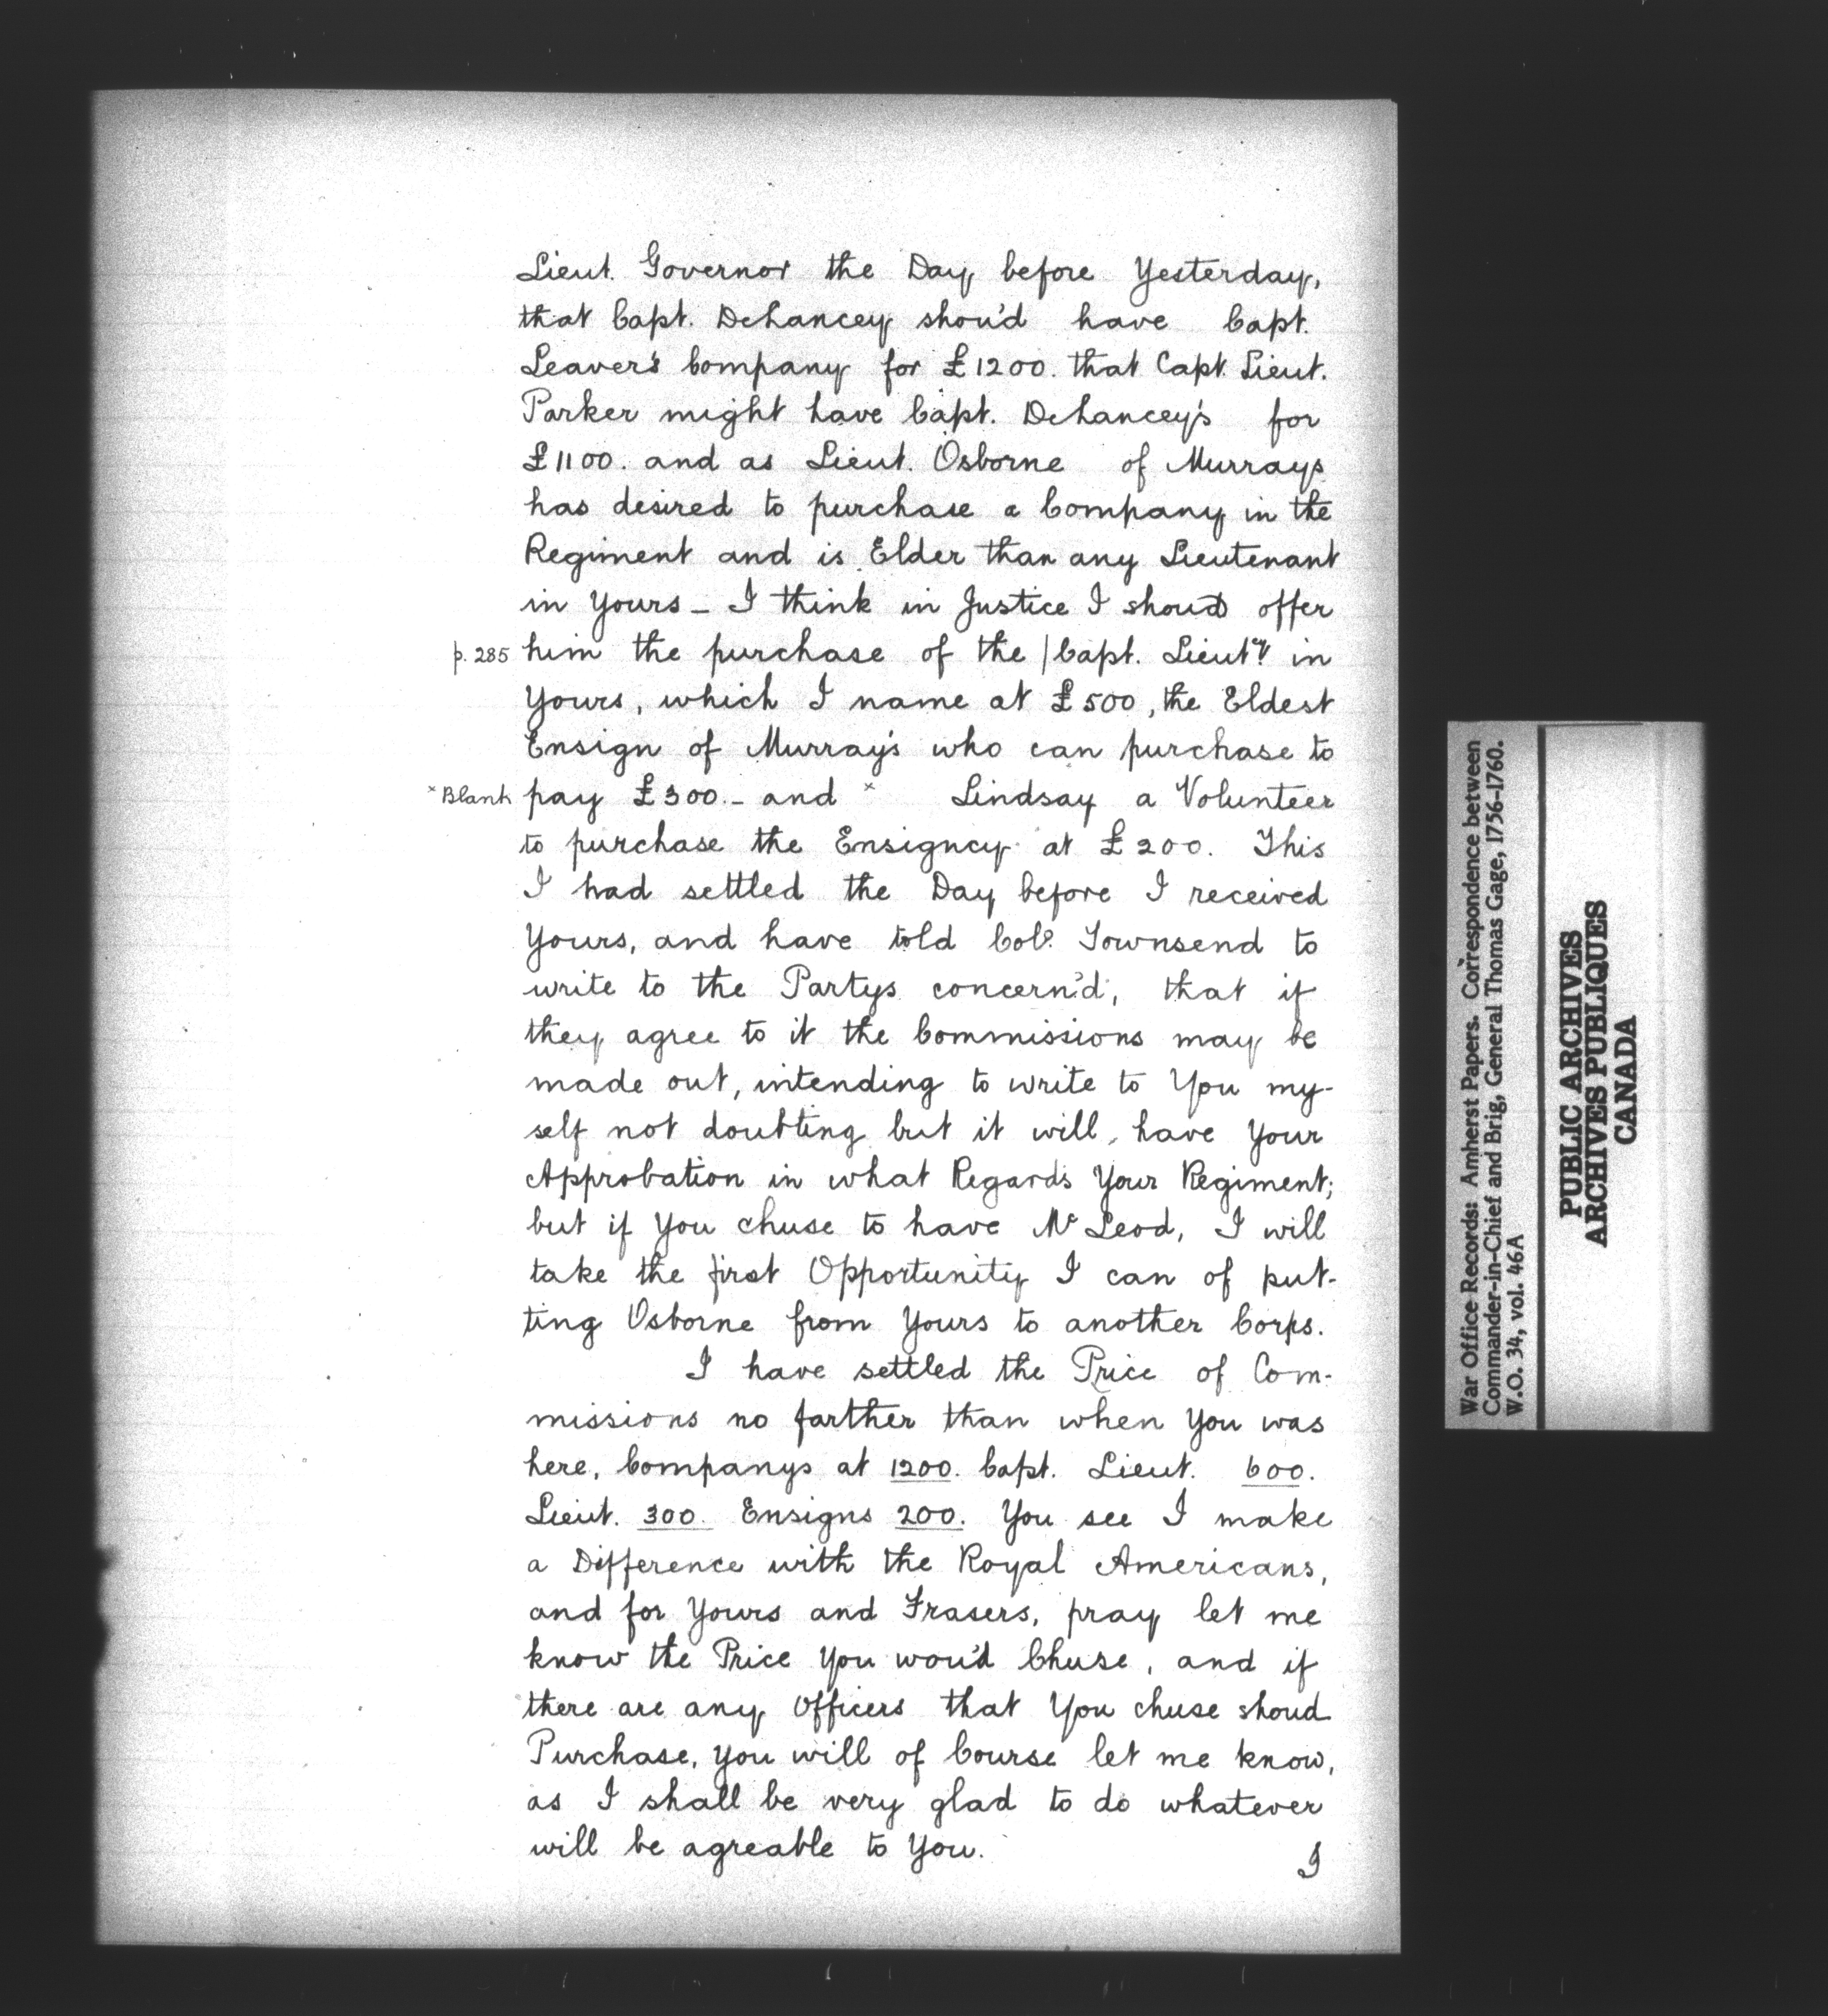 Lieut. Governor the Day before Yesterday,
that Capt. Delancey shou'd have Capt.
Leaver's Company for £1200. that Capt. Lieut.
Parker might have Capt. Delancey's for
£1100. and as Lieut. Osborne of Murrays
has desired to purchase a Company in the
Regiment and is Elder than any Lieutenant
in Yours – I think in Justice I shoud offer
p. 285 him the purchase of the | Capt. Lieutcy. in
Yours, which I name at £500, the Eldest
Ensign of Murray's who can purchase to
*Blank pay £300. – and * Lindsay a Volunteer
to purchase the Ensigncy at £200. This
I had settled the Day before I received
Yours, and have told Colo. Townsend to
write to the Partys concern'd, that if
they agree to it the Commissions may be
made out, intending to write to You my-
self not doubting but it will, have Your
Approbation in what Regards Your Regiment;
but if You chuse to have Mc Leod, I will
take the first Opportunity I can of put-
ting Osborne from Yours to another Corps.
I have settled the Price of Com-
missions no farther than when You was
here, Companys at 1200. Capt. Lieut. 600.
Lieut. 300. Ensigns 200. You see I make
a Difference with the Royal Americans,
and for Yours and Frasers, pray let me
know the Price You wou'd Chuse, and if
there are any Officers that You chuse shoud
Purchase, You will of Course let me know,
as I shall be very glad to do whatever
will be agreable to You.
I
War Office Records: Amherst Papers. Correspondence between
Commander-in-Chief and Brig, General Thomas Gage, 1756-1760.
W.O. 34, vol. 46A
PUBLIC ARCHIVES
ARCHIVES PUBLIQUES
CANADA